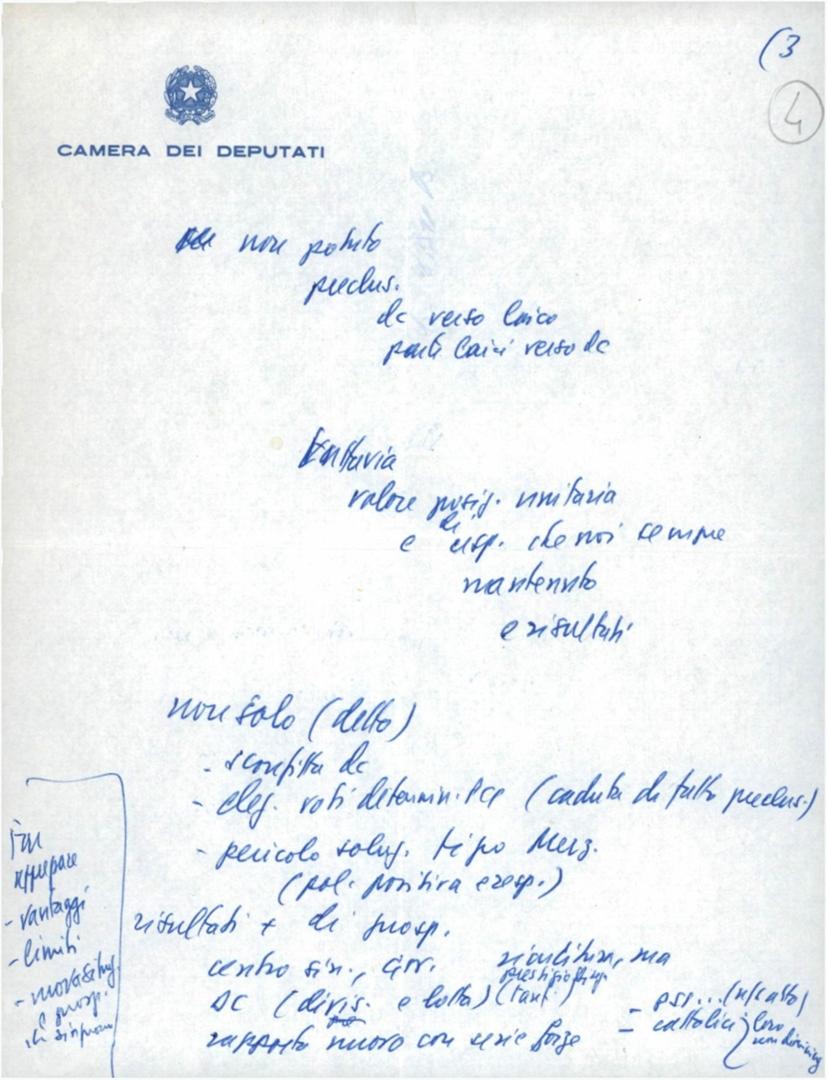 (3
4
CAMERA DEI DEPUTATI
non potuto
preclus.
dc verso laico
parti laici verso dc
tuttavia
valore posiz. unitaria
di
e resp. che noi sempre
mantenuto
e risultati
non solo (detto)
- sconfitta dc
- elez. voti determin. PCI (caduta di fatto preclus.)
- pericolo soluz. tipo Merz.
(pol. positiva e resp.)
risultati + di prosp.
centro sin., Gov. ma
DC (divis. e lotta) (Fanf.)
rapporto nuovo con serie forze
Far
apparire
- vantaggi
- limiti
-
e prosp.
di
- cattolici loro